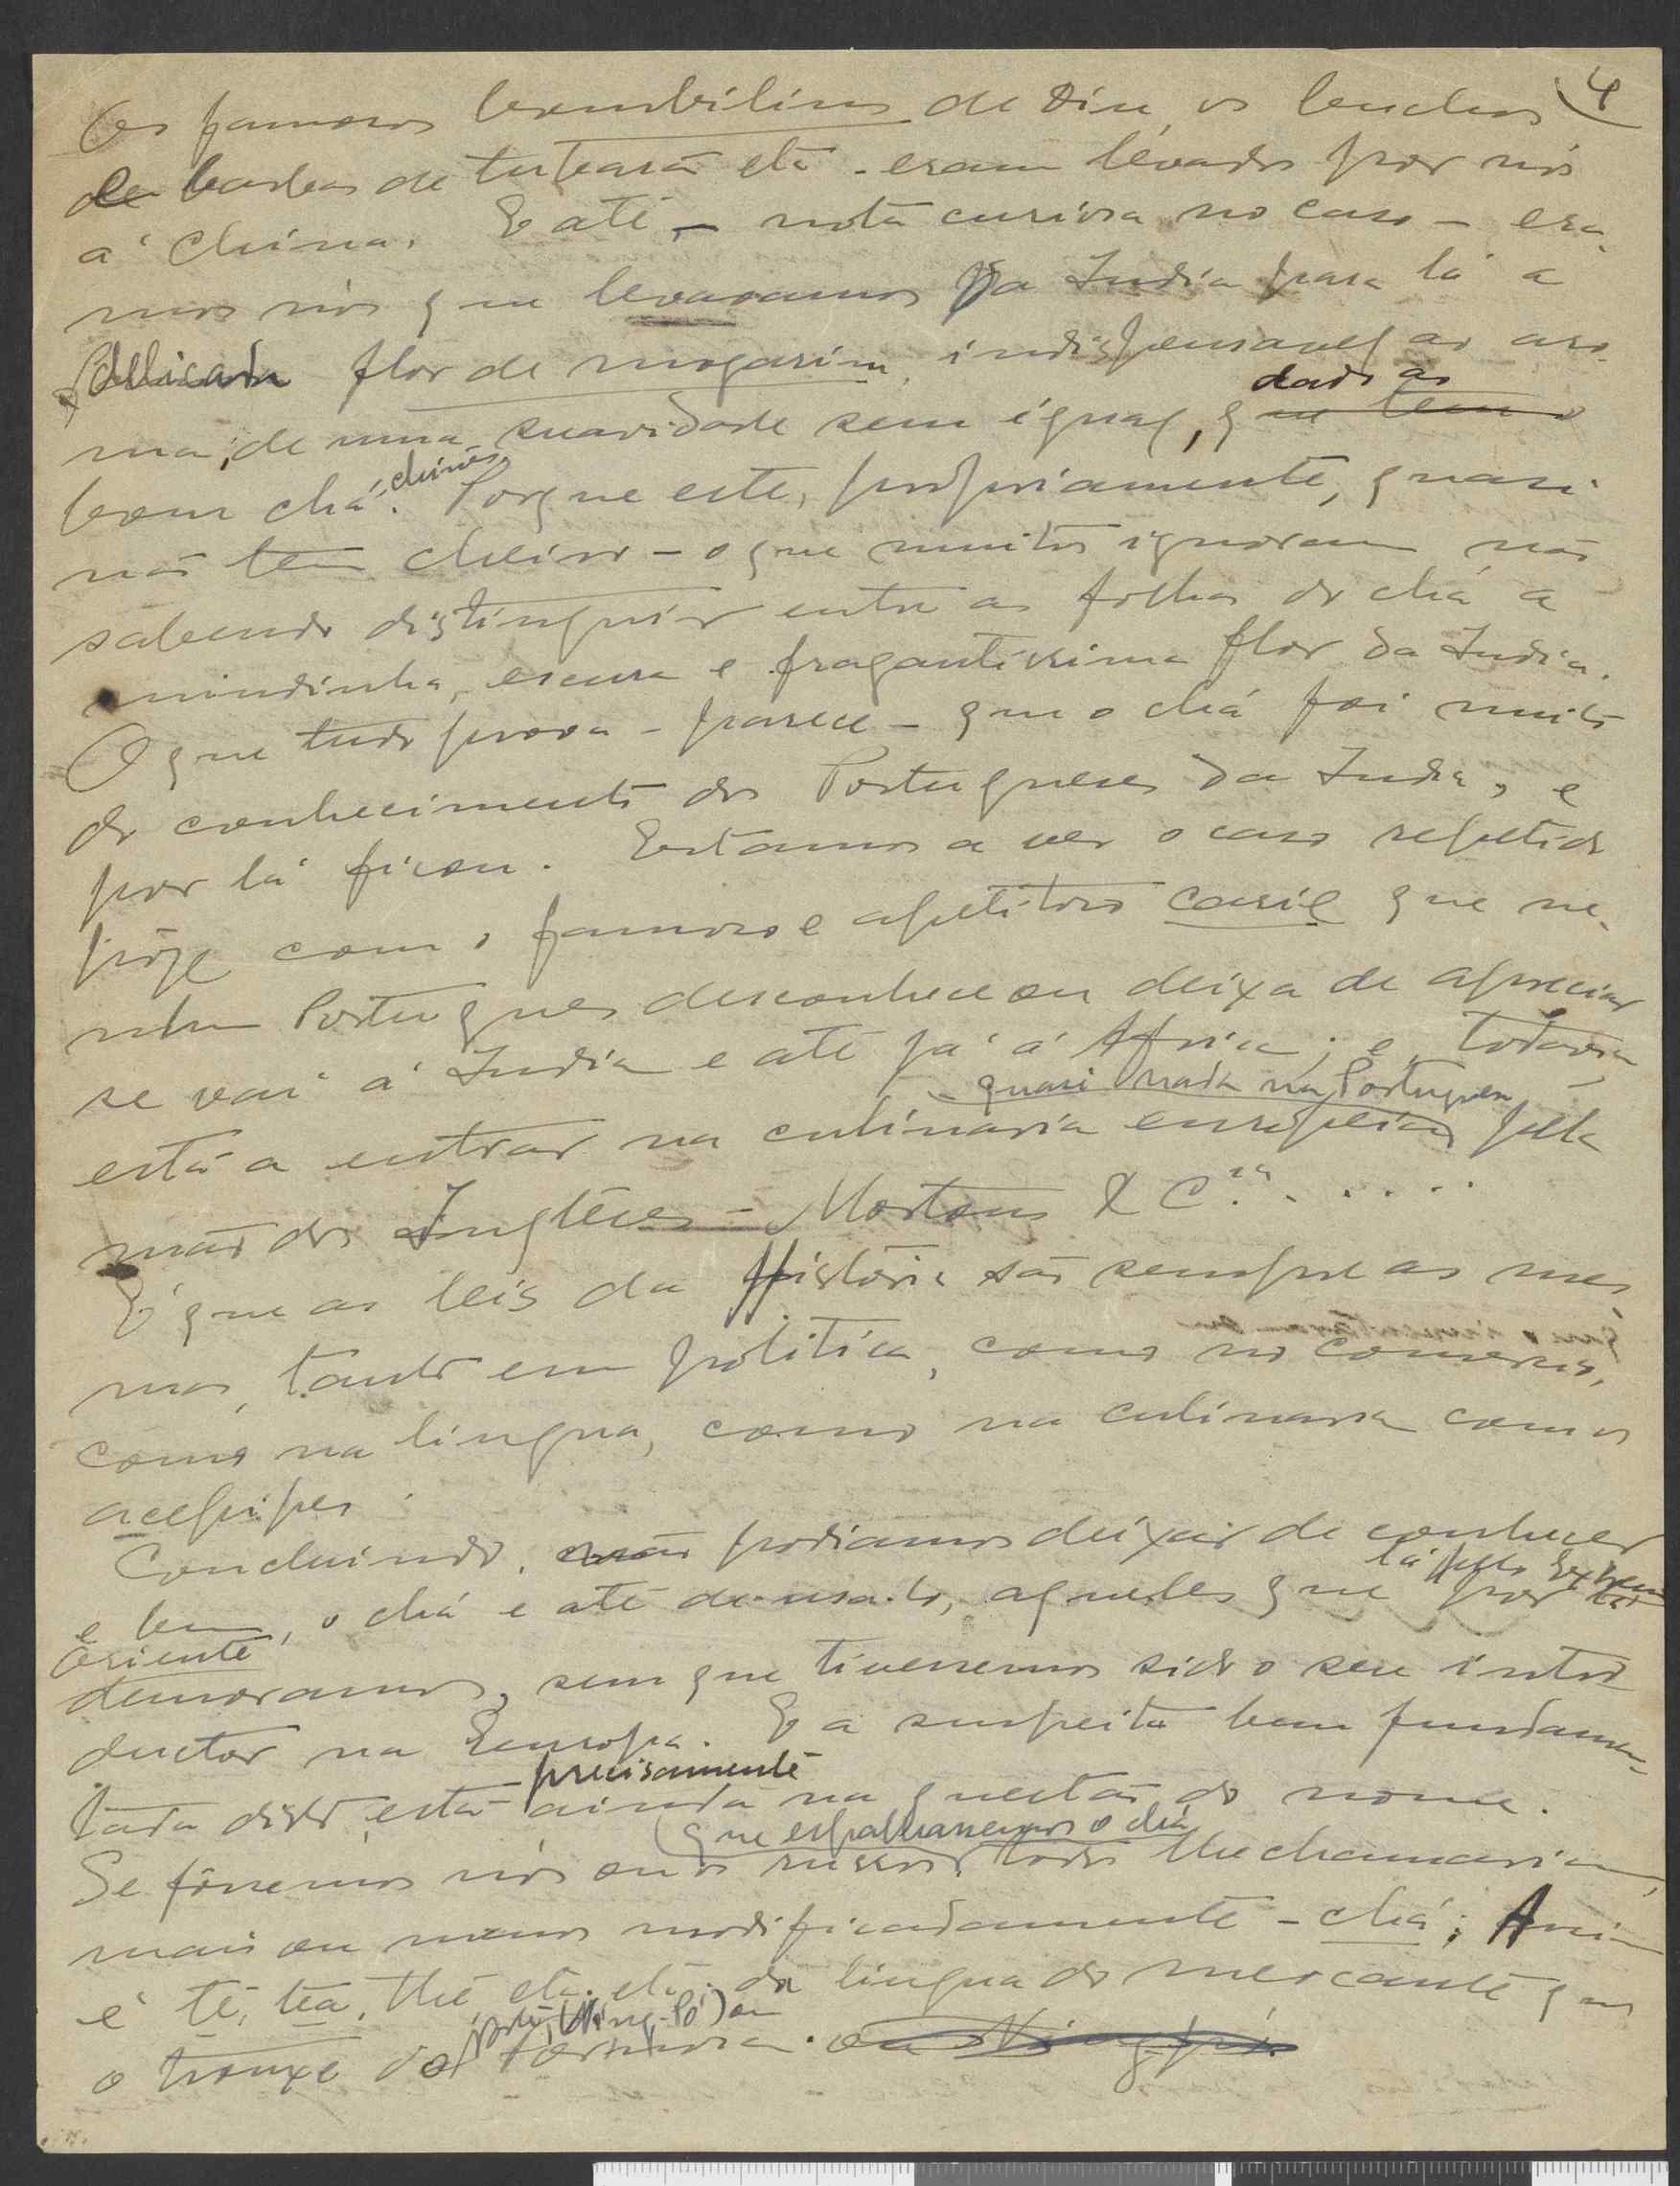 4
Os famosos bambilins de Diu, os buchos
de barbas de tartaruga etc. eram levados por nós
á China. E até – nota curiosa no caso – era-
mos nós que levavamos da India para lá a
delicada flor de mogarim, indispensavel ao aro-
ma, de uma suavidade sem igual, dado ao
bom chá chinês. Porque este, propriamente, quasi
não tem cheiro – o que muitos ignoram não
sabendo distinguir entre as folhas do chá a
miudinha, escura e fragantissima flor da India.
O que tudo prova – parece – que o chá foi muito
do conhecimento dos Portugueses da India, e
por lá ficou. Estamos a ver o caso repetido
hoje com o famoso e apetitoso caril que ne-
nhum Português desconhece ou deixa de apreciar
se vai á India e até já á Africa; e, todavia,
quasi nada na Portuguesa
está a entrar na culinaria europeia pela
mão dos Inglêses – Mortons & C.ia . . . . .
E' que as leis da Historia são sempre as mes-
mas, tanto em politica, como no comercio,
como na lingua, como na culinaria com os
acepipes.
Concluindo, não podiamos deixar de conhecer
lá pelo Extremo
e bem, o chá e até de usa-lo, aqueles que por lá
Oriente
demoramos, sem que tivessemos sido o seu intro-
ductor na Europa. E a suspeita bem fundamen-
precisamente
tada disto, está ainda na questão do nome.
que espalhassemos o chá
Se fôssemos nós ou os russos, todos lhe chamariam,
mais ou menos modificadamente – chá; Assim
é tê, tea, thé, etc. etc. da lingua do mercante que
(Ning-Pó) ou
o trouxe da Formosa. ou Ning-pó.